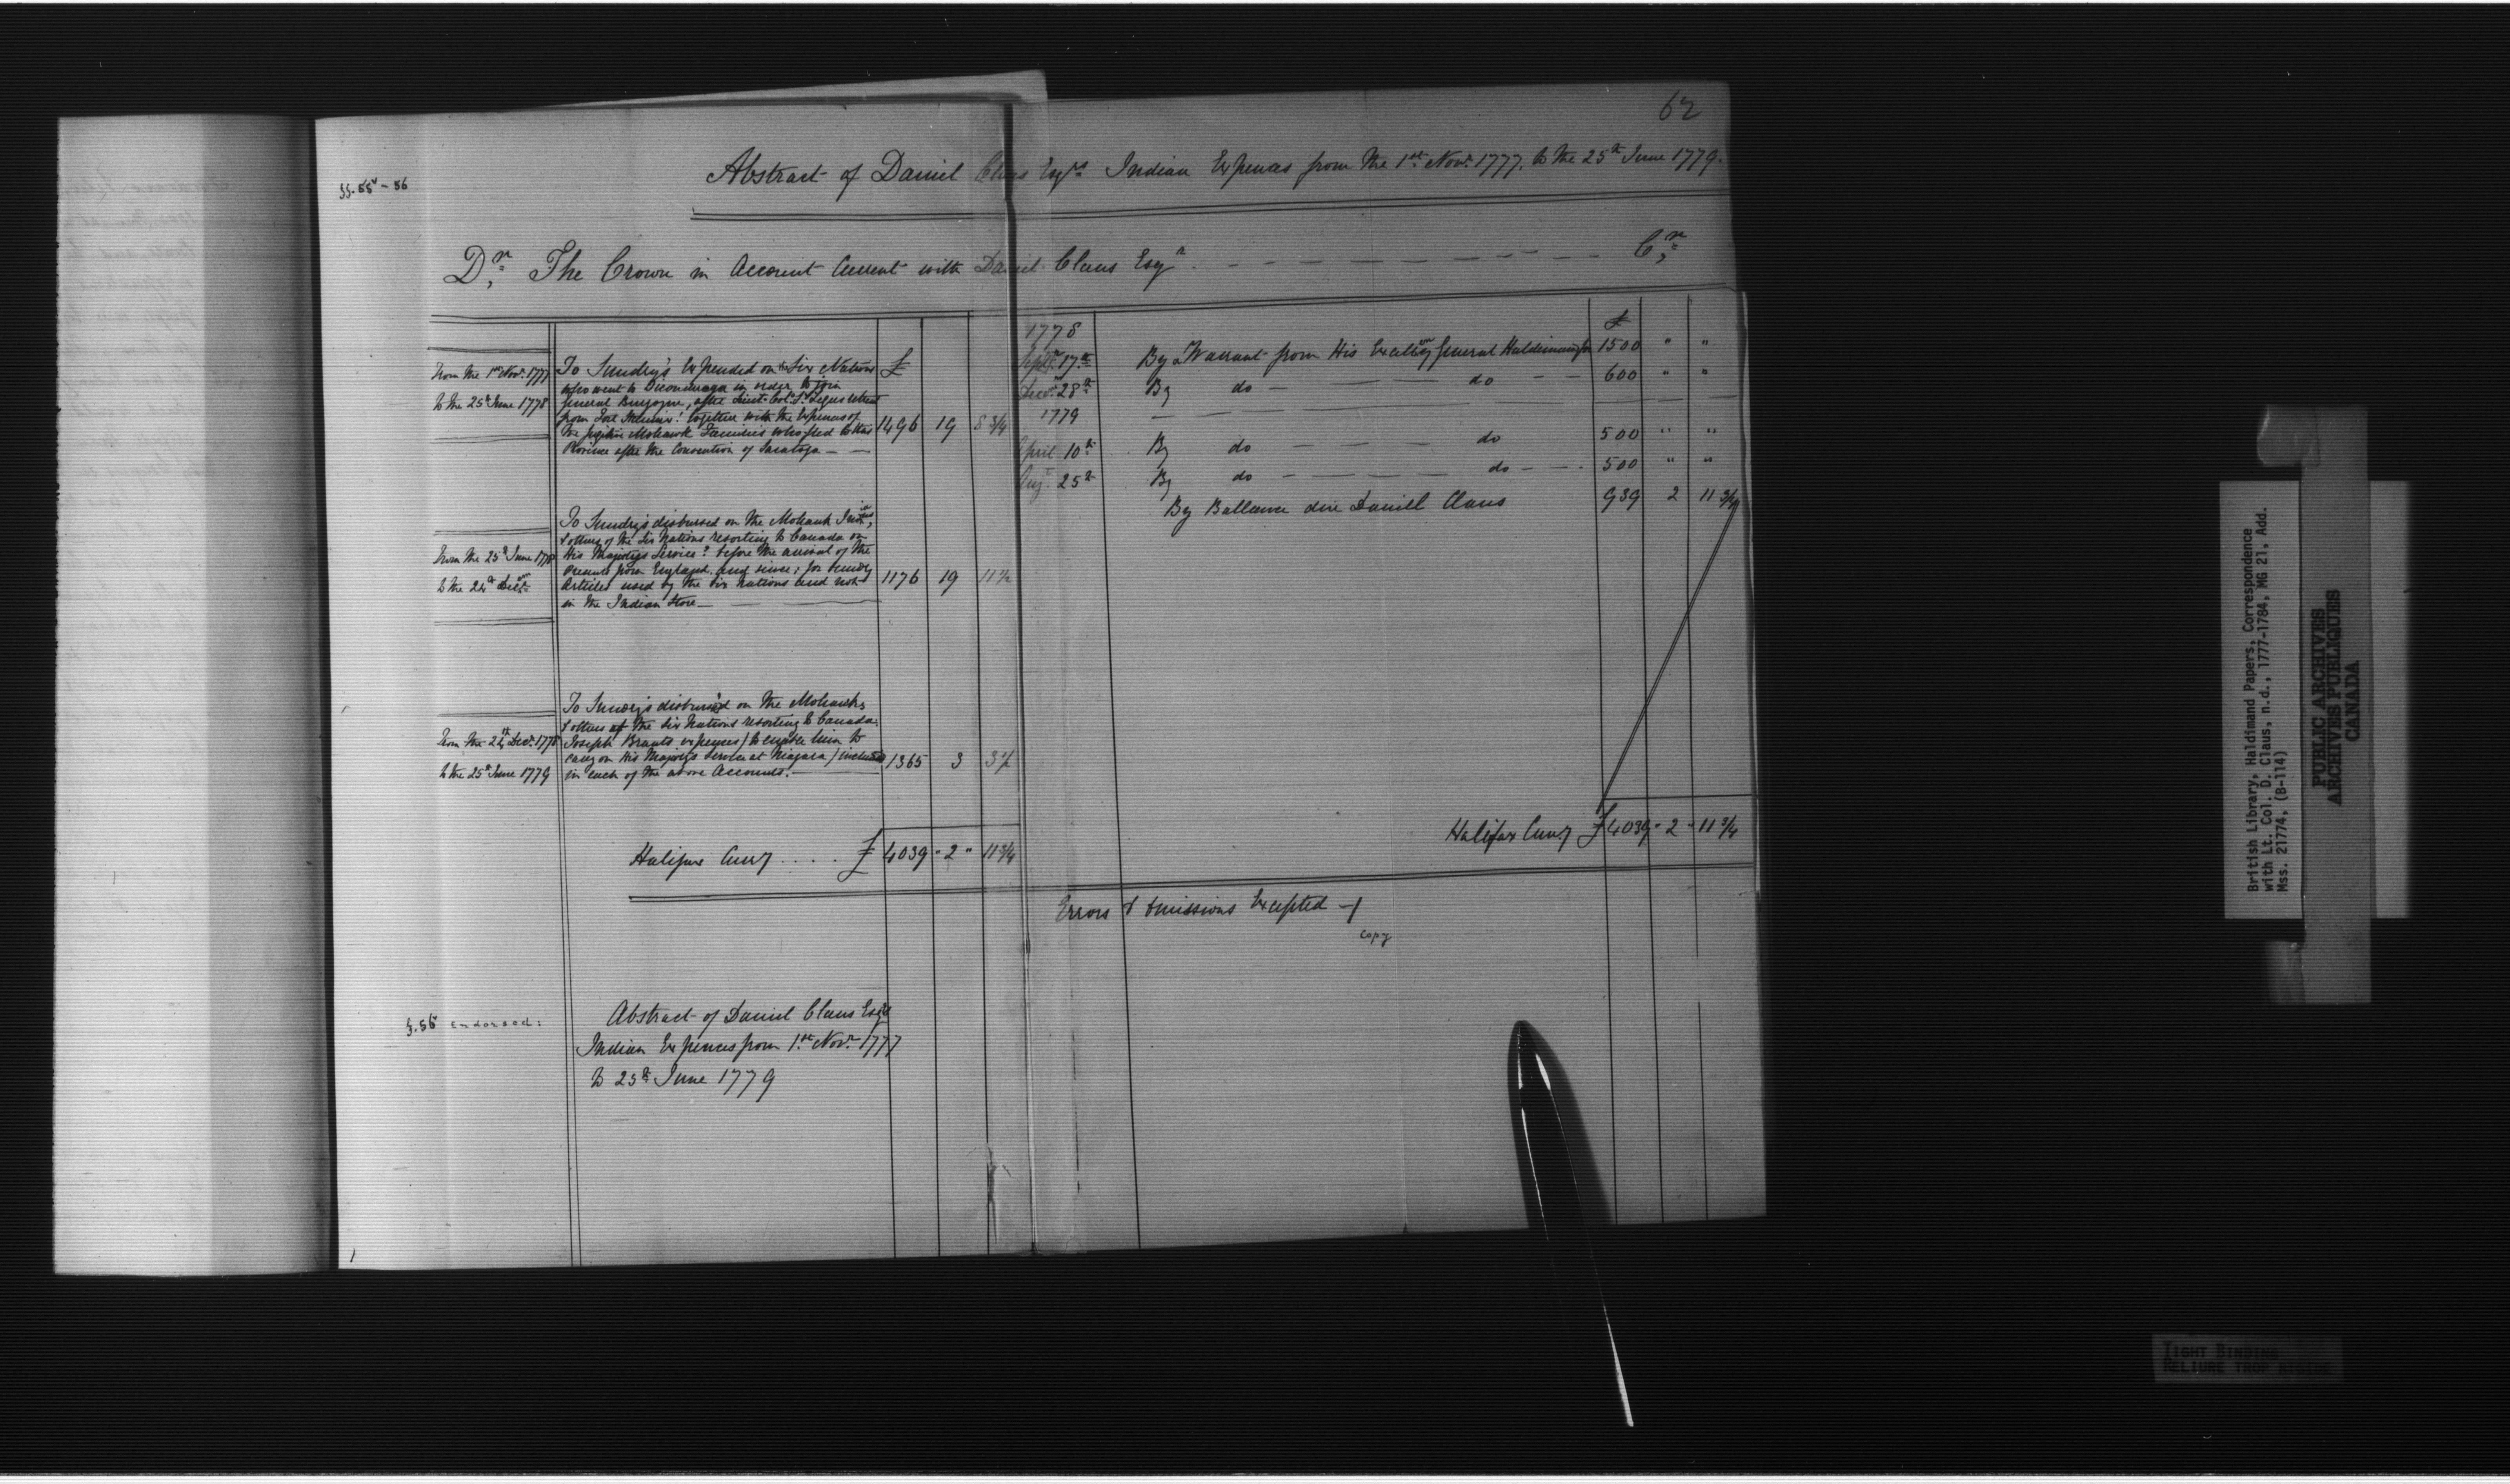 62
ff. 55v - 56
Abstract of Daniel Claus Esqrs Indian Expences from the 1st Novr. 1777. to the 25th June 1779.
Dr. The Crown in Account Current with Daniel Claus Esqr. Cr.
From the 1st Novr. 1777
to the 25th June 1778
To Sundrys Expended on the Six Nations
who went to in order to join
General Burgoyne, after Lieut: Colo. St. Legers retreat
from Fort together with the Expences of
the fugitive Mohawk Families who fled to this
Province after the Convention of Saratoga — —
£
1496 19 8 3/4
From the 25th June 1778
to the 24th Decr.
To Sundrys disbursed on the Mohawk
& others of the Six Nations resorting to Canada on
His Majestys Service? before the arrival of the
Presents from England. and since; for sundry
Articles used by the Six Nations and not
in the Indian Store —
1176 19 11 1/2
From the 24th Decr. 1778
to the 25th June 1779
To Sundrys disbursed on the Mohawks
& others of the Six Nations resorting to Canada.
Joseph Brants expenses) to enable him to
carry on His Majestys Service at Niagara) included
in each of the above Accounts. —
1365 3 3 1/2
Halifax Curry . . . . £ 4039 " 2 " 11 3/4
1778 £
Septr. 17th By a Warrant from His Excellcy General Haldimand for 1500 " "
Decr. 28th By do — — — do — — 600 " "
1779
April 10th By do — — — do 500 " "
Augt. 25th By do — — — do — — 500 " "
By Ballance due Daniell Claus 939 2 11 3/4
Halifax Curry £ 4039 " 2 " 11 3/4
Errors & Omissions Excepted —
Copy
f. 56v Endorsed:
Abstract of Daniel Claus Esqrs
Indian Expences from 1st Novr. 1777
to 25th June 1779
British Library, Haldimand Papers, Correspondence
with Lt. Col. D. Claus, n.d., 1777-1784, MG 21, Add.
Mss. 21774, (B-114)
PUBLIC ARCHIVES
ARCHIVES PUBLIQUES
CANADA
TIGHT BINDING
RELIURE TROP RIGIDE